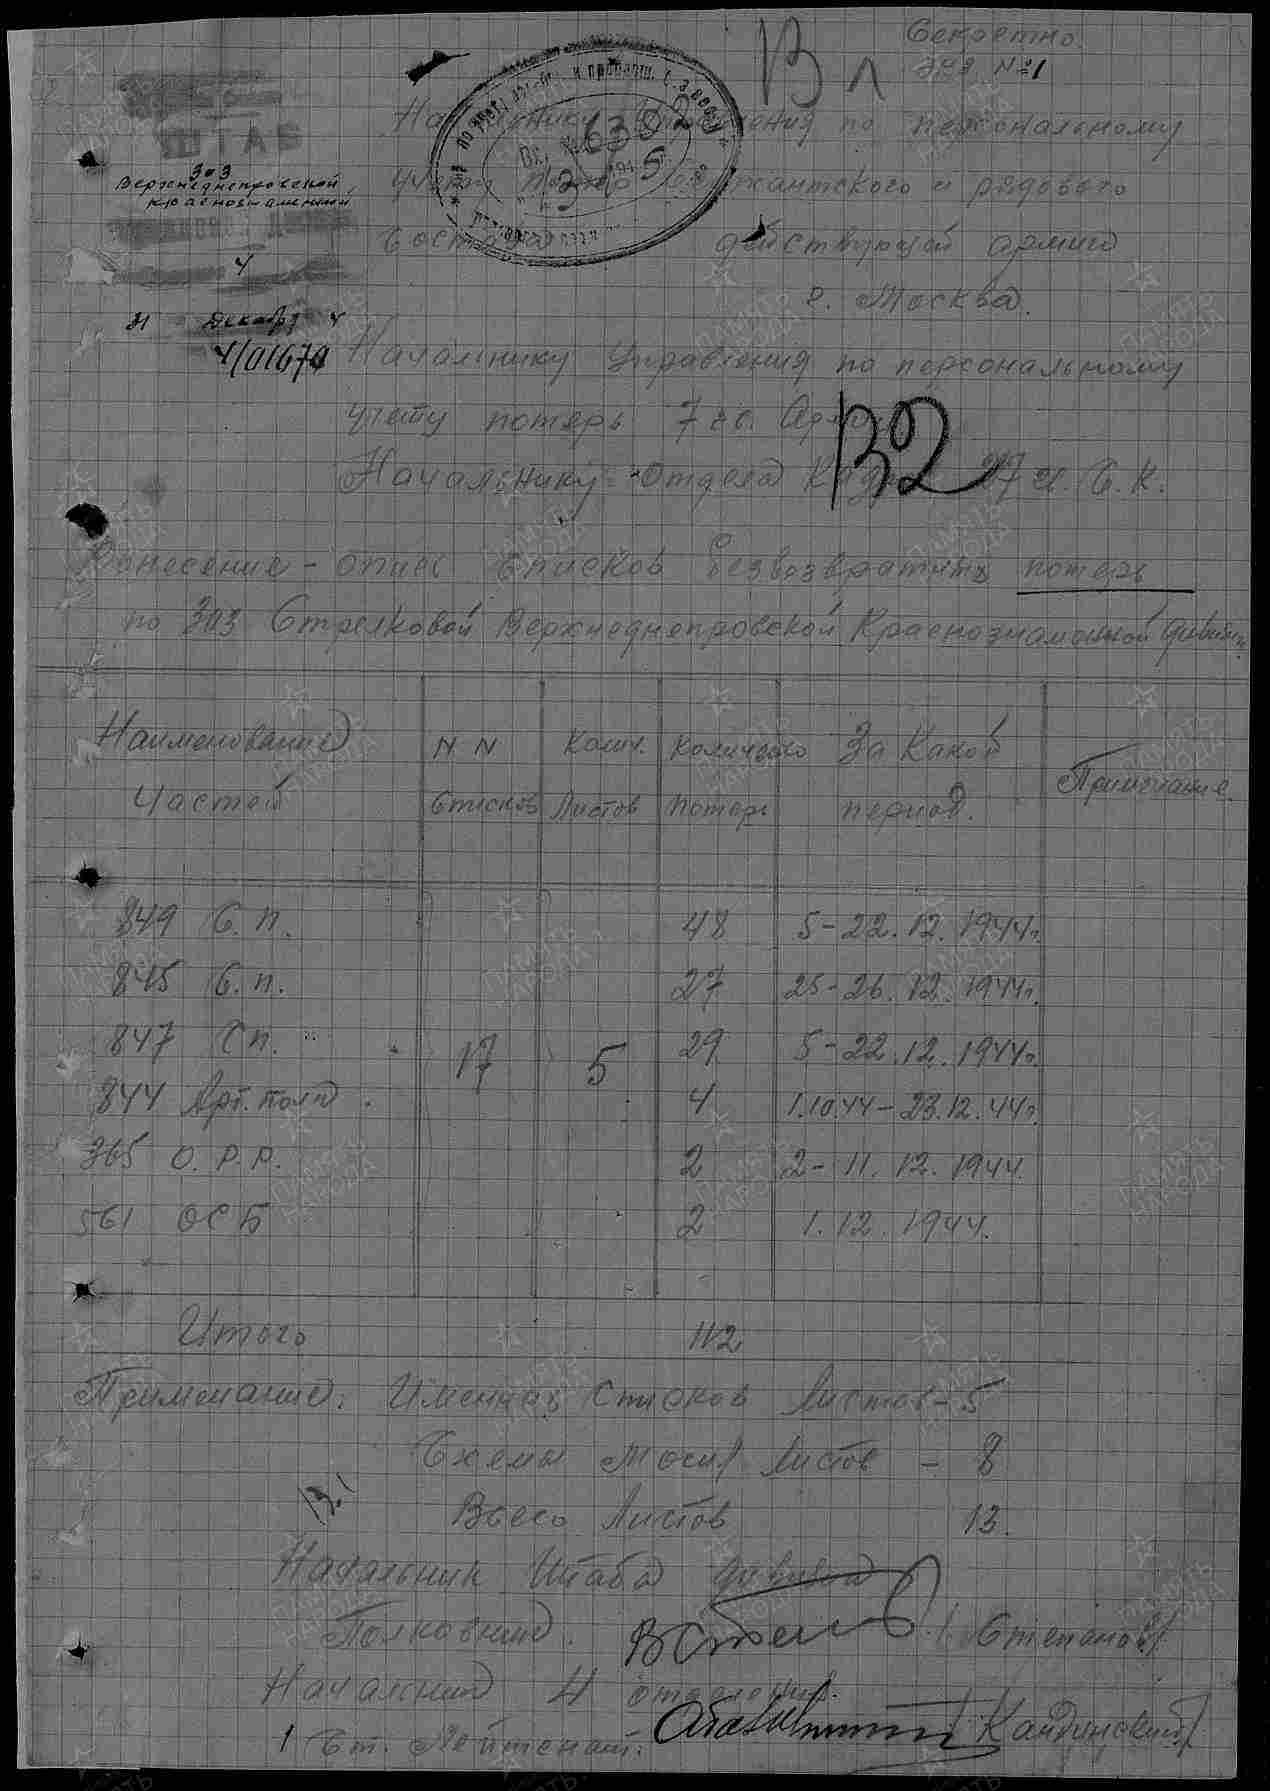 Секретно.
экз. №1
Начальнику Управления по персональному
учету потерь сержантского и рядового
состава действующей армии
г. Москва.
ШТАБ
303
Верхнеднепровской
краснознаменной
4
31 Декабр 4
4/01674
Вх. 6382
5
В л
Начальнику Управления по персональному
учету потерь 7 гв. Арм
В2
Начальнику Отдела Кад 27 гв. С. К.
Донесение - опись списков безвозвратных потерь
по 303 Стрелковой Верхнеднепровской Краснознаменной дивизии
Наименование частей
N N списков
Колич. листов
Количество потерь
За какой период.
Примечание
849 С. п. 48 5-22.12.1944г.
845 С. п. 27 25-26.12.1944г.
847 Сп. 29 5-22.12.1944г.
17 5
844 Арт. полк 4 1.10.44-23.12.44г.
365 О. Р. Р. 2 2-11.12.1944.
561 ОСБ 2 1.12.1944.
Итого 112
Примечание: Именных списков листов - 5
Схемы могил листов - 8
Всего листов 13.
Начальник Штаба дивизии
Полковник /Степанов/
Начальник 4 отделения.
Ст. Лейтенант. /Кандинский/